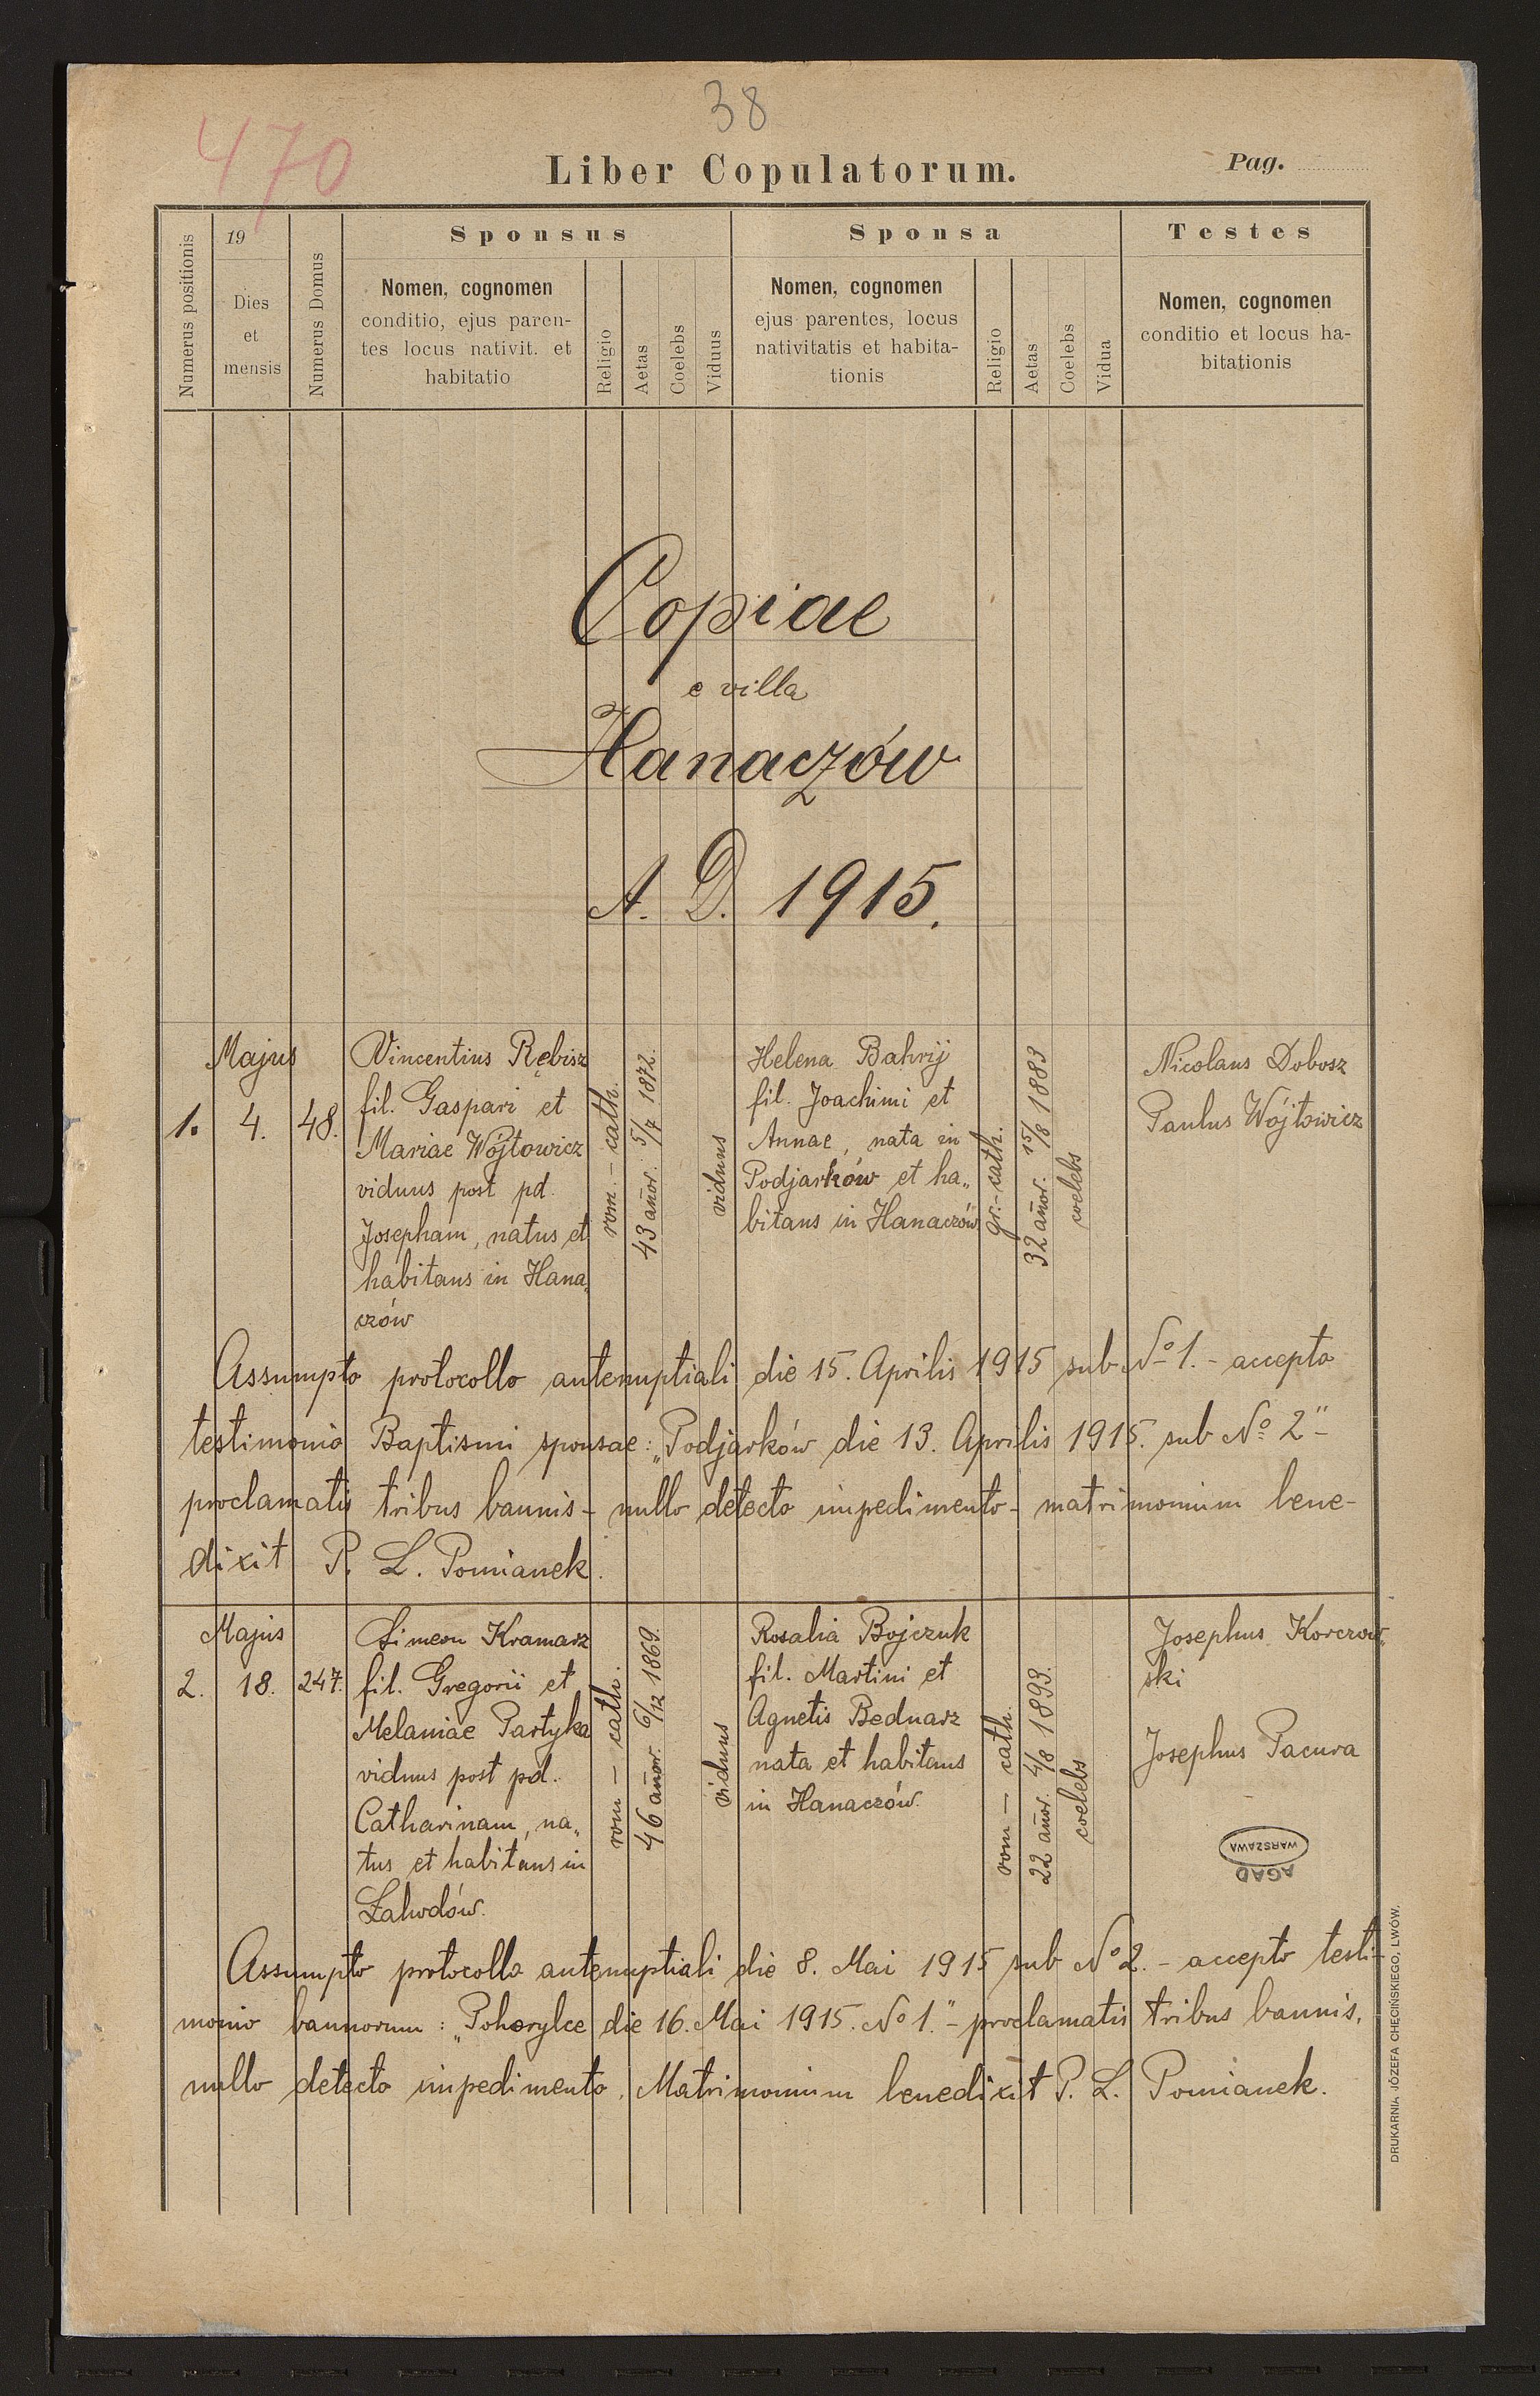 38
470
Liber Copulatorum.
Pag.
Numerus positionis
19
Dies
et
mensis
Numerus Domus
Sponsus
Nomen, cognomen
conditio, ejus paren-
tes locus nativit. et
habitatio
Religio
Aetas
Coelebs
Viduus
Sponsa
Nomen, cognomen
ejus parentes, locus
nativitatis et habita-
tionis
Religio
Aetas
Coelebs
Vidua
Testes
Nomen, cognomen
conditio et locus ha-
bitationis
Copiae
e villa
Hanaczów
A. D. 1915.
1.
Majus
4.
48.
Vincentius Rębisz
fil. Gaspari et
Mariae Wójtowicz
viduus post pd.
Josepham, natus et
habitans in Hana„
czów
rom. - cath.
43 añor. 5/7 1872.
viduus
Helena Bahrij
fil. Joachimi et
Annae, nata in
Podjarków et ha„
bitans in Hanaczów
gr. - cath.
32 añor. 15/8 1883
coelebs
Nicolaus Dobosz
Paulus Wójtowicz
Assumpto protocollo antenuptiali die 15. Aprilis 1915 sub No 1. - accepto
testimonio Baptismi sponsae: „Podjarków die 13. Aprilis 1915. sub No 2" -
proclamatis tribus bannis - nullo detecto impedimento - matrimonium bene-
dixit P. L. Pomianek.
2.
Majus
18.
247.
Simeon Kramarz
fil. Gregorii et
Melaniae Partyka
viduus post pd.
Catharinam, na„
tus et habitans in
Załwdów.
rom - cath.
46 añor. 6/12 1869.
viduus
Rosalia Bojczuk
fil. Martini et
Agnetis Bednarz
nata et habitans
in Hanaczów.
rom - cath.
22 añor. 4/8 1893.
coelebs
Josephus Korczow„
ski
Josephus Pacura
WARSZAWA
AGAD
Assumpto protocollo antenuptiali die 8. Mai 1915 sub No 2. - accepto testi-
monio bannorum: „Pohorylce die 16. Mai 1915. No 1." - proclamatis tribus bannis,
nullo detecto impedimento. Matrimonium benedixit P. L. Pomianek.
DRUKARNIA JÓZEFA CHĘCIŃSKIEGO, LWÓW.